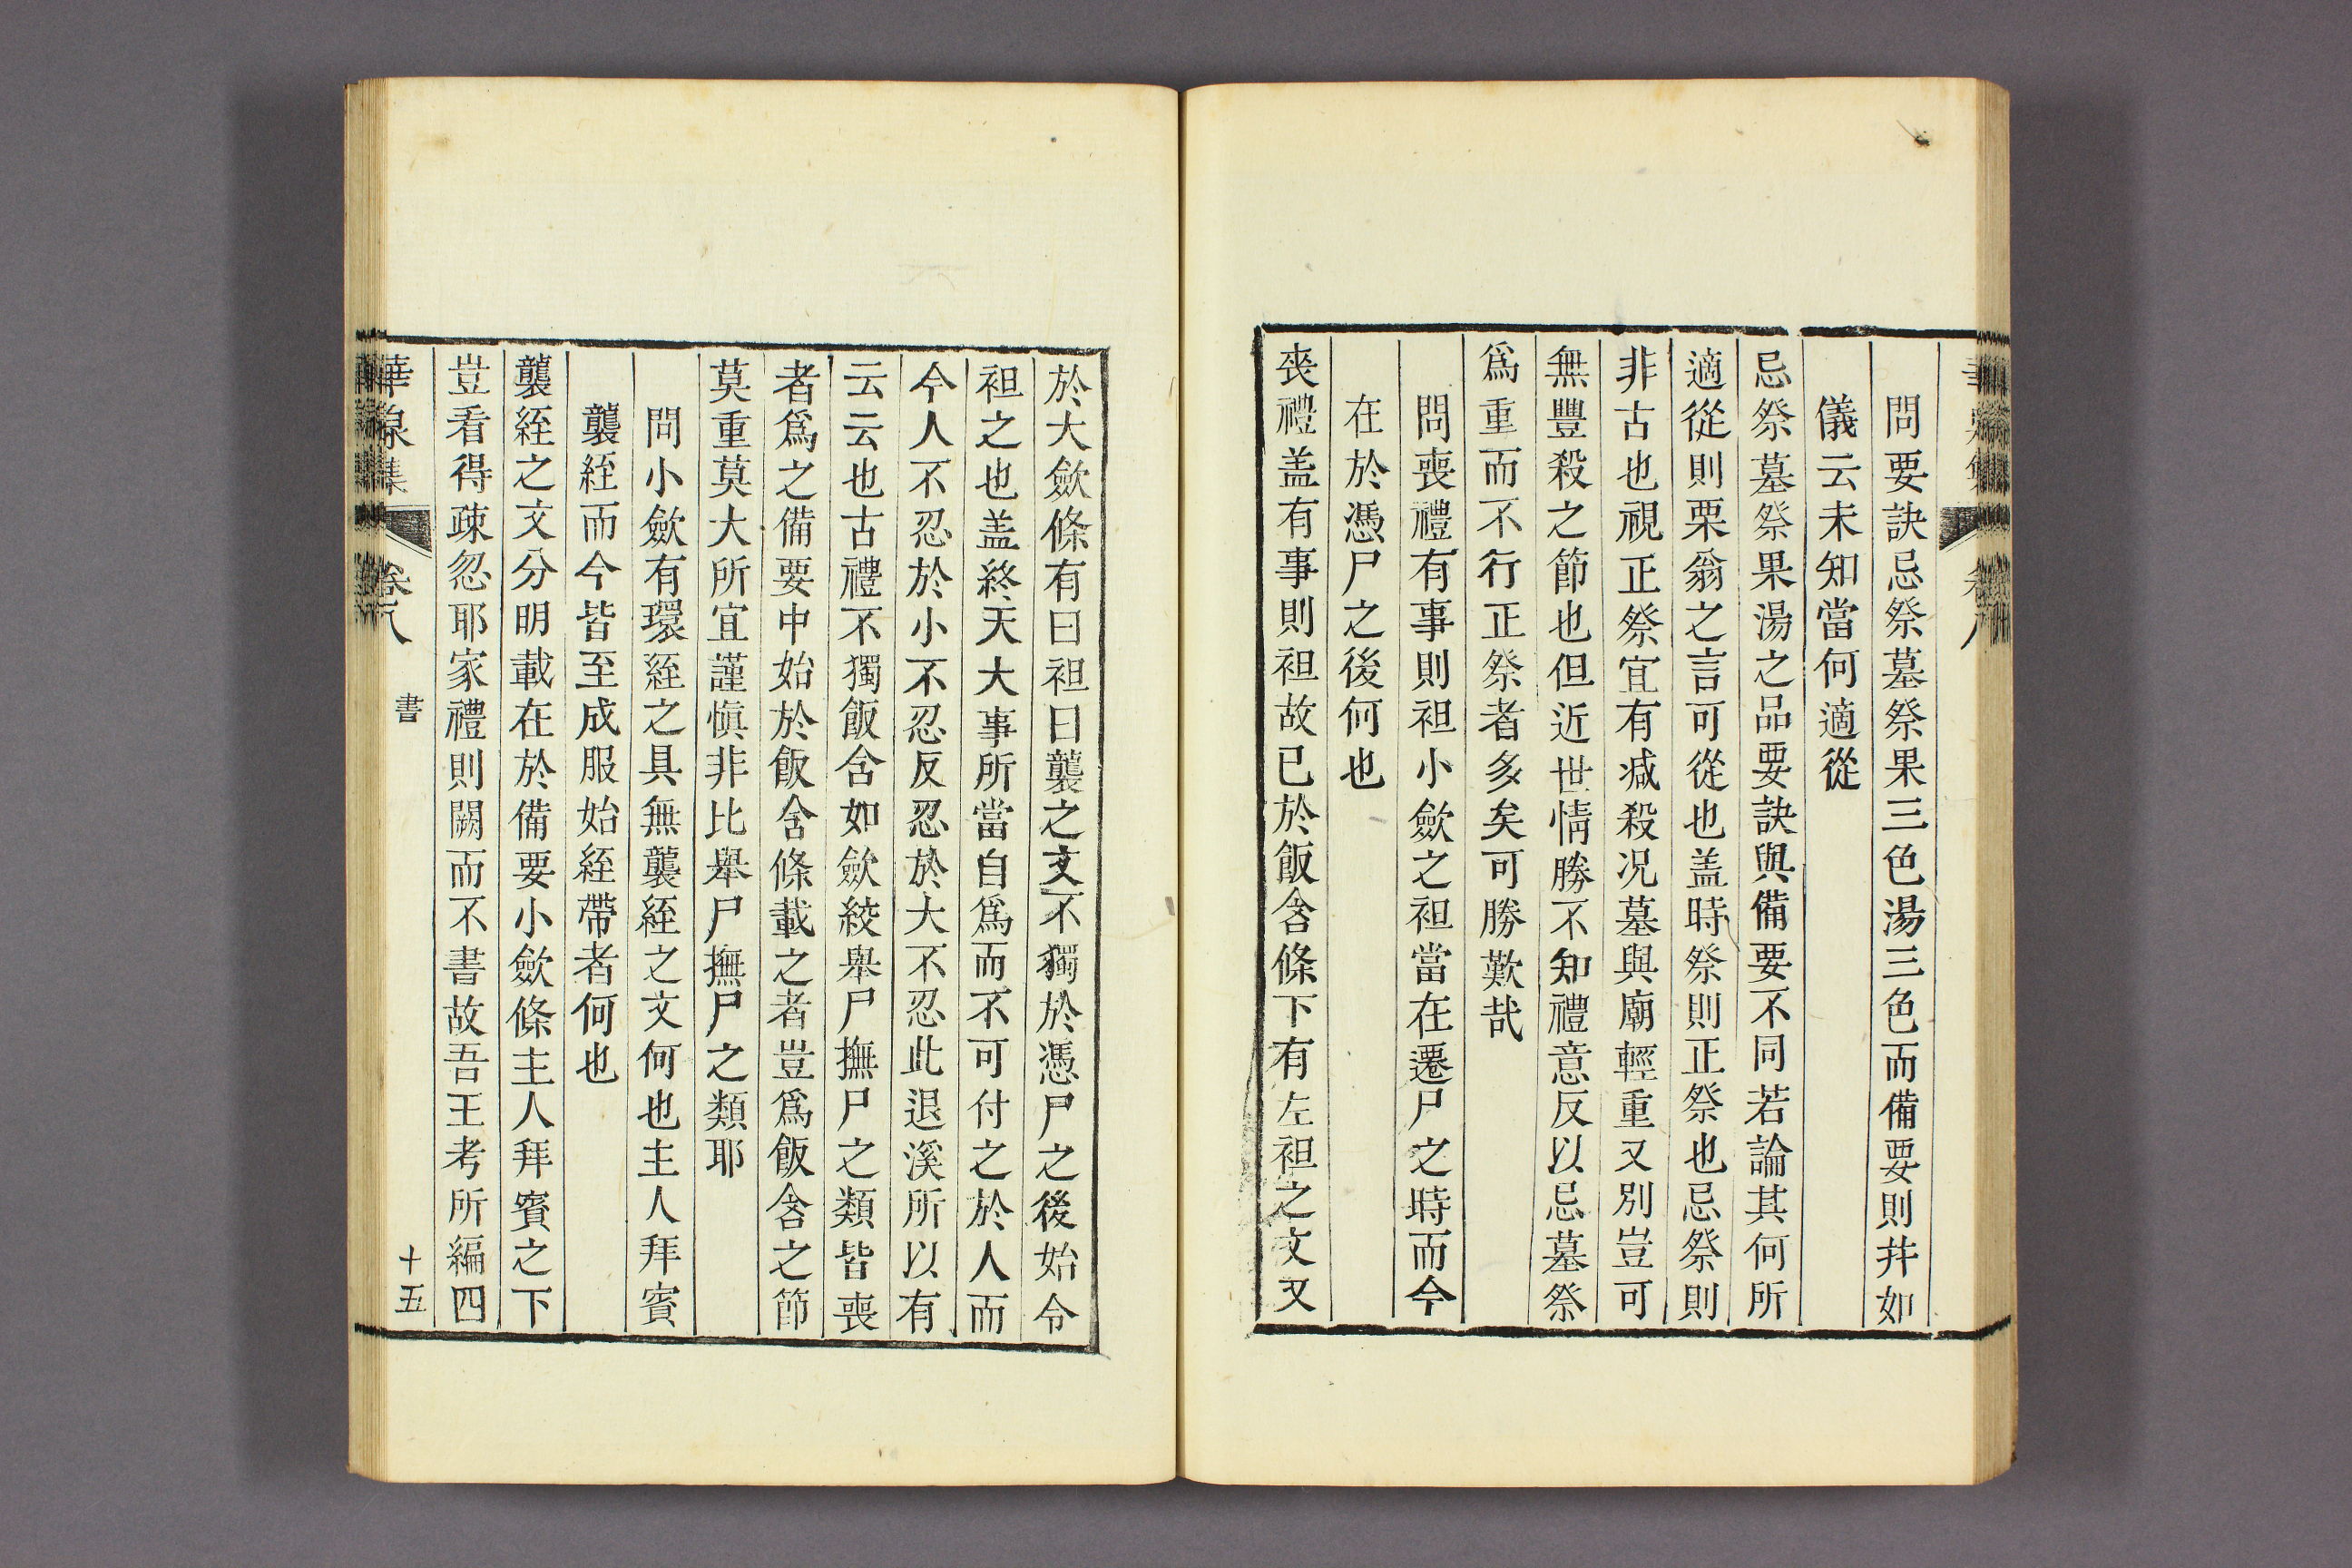 問要訣忌祭墓祭果三色湯三色而備要則幷如
儀云未知當何適從
忌祭墓祭果湯之品要訣與備要不同若論其何所
適從則栗翁之言可從也盖時祭則正祭也忌祭則
非古也視正祭宜有减殺况墓與廟輕重又別豈可
無豐殺之節也但近世情勝不知禮意反以忌墓祭
爲重而不行正祭者多矣可勝歎哉
問喪禮有事則袒小歛之袒當在遷尸之時而今
在於憑尸之後何也
喪禮盖有事則袒故已於飯含條下有左袒之文又
於大歛條有曰袒曰襲之文不獨於憑尸之後始令
袒之也盖終天大事所當自爲而不可付之於人而
今人不忍於小不忍反忍於大不忍此退溪所以有
云云也古禮不獨飯含如歛絞舉尸撫尸之類皆喪
者爲之備要中始於飯含條載之者豈爲飯含之節
莫重莫大所宜謹愼非比舉尸撫尸之類耶
問小歛有環絰之具無襲絰之文何也主人拜賓
襲絰而今皆至成服始絰帶者何也
襲絰之文分明載在於備要小歛條主人拜賓之下
豈看得疎忽耶家禮則闕而不書故吾王考所編四
華泉集 卷八 書 十五